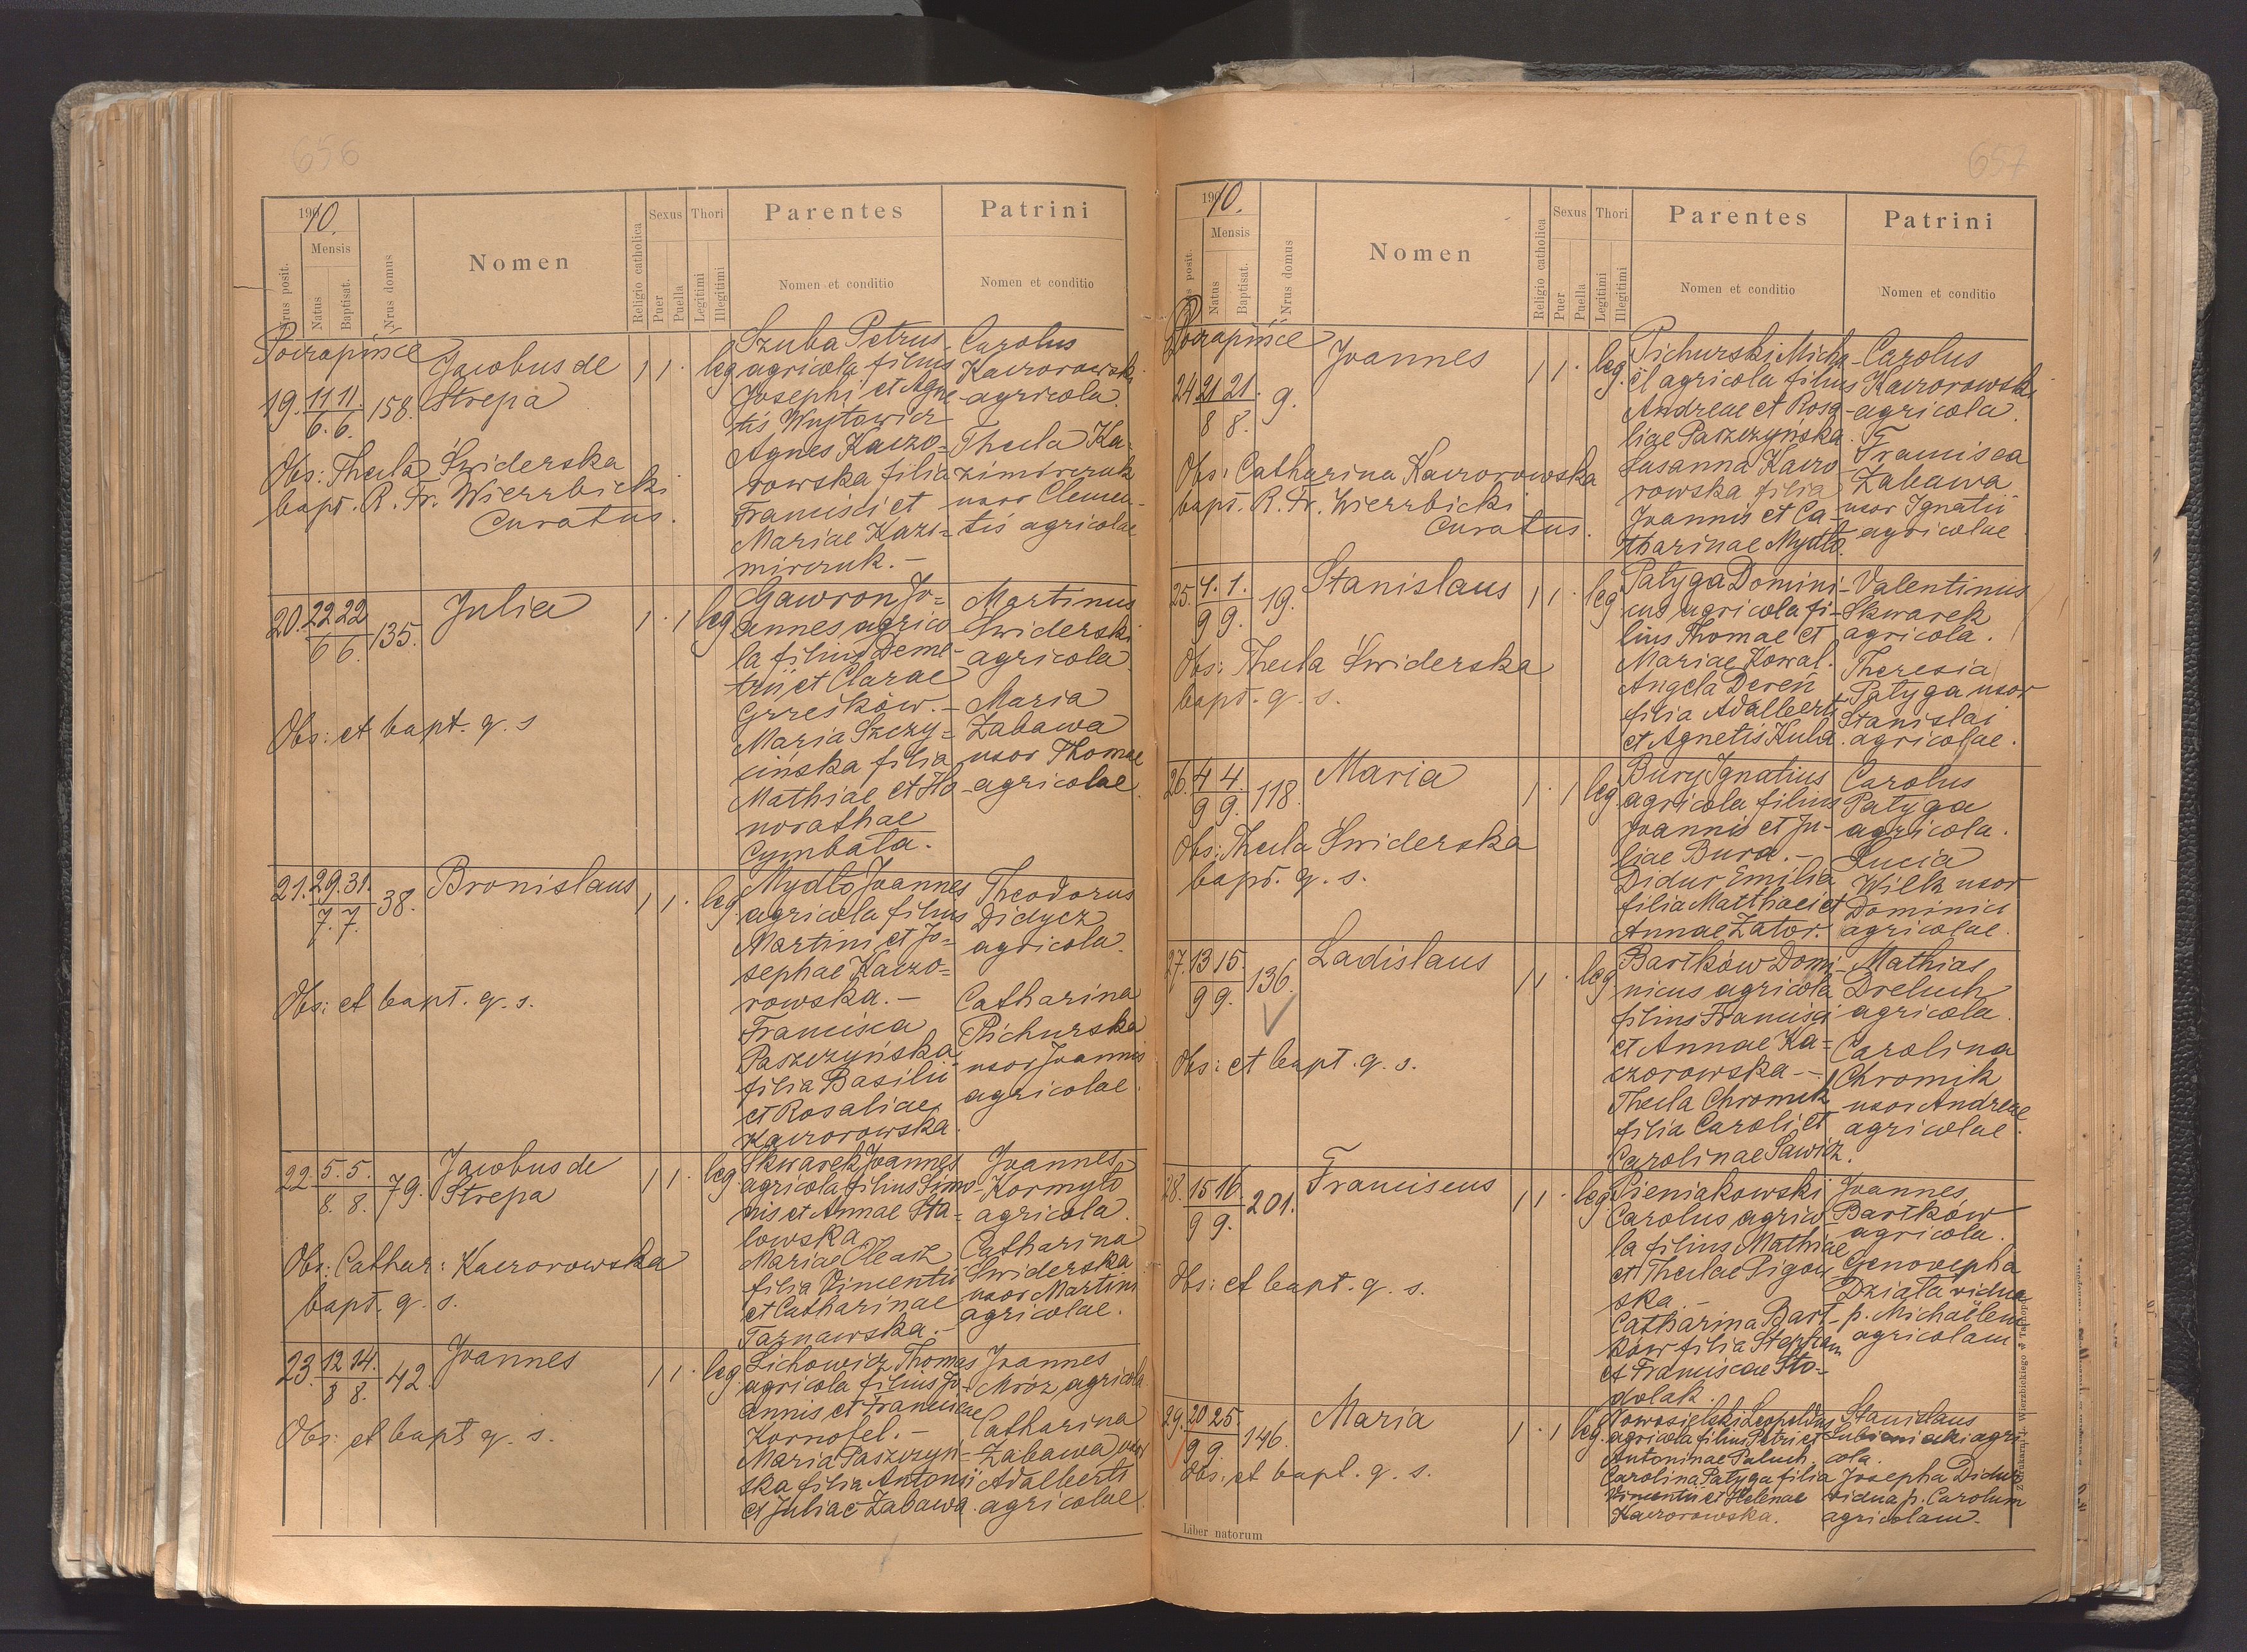 656
1910.
Mensis
Nrus posit.
Natus
Baptisat.
Nrus domus
Nomen
Religio catholica
Sexus
Puer
Puella
Thori
Legitimi
Illegitimi
Parentes
Nomen et conditio
Patrini
Nomen et conditio
19. 11/6. 11/6. 158. Jacobus de
Strepa
1 1 . leg
Szuba Petrus
agricola filius
Josephi et Agne-
tis Wujtowicz
Agnes Kaczo-
rowska filia
Francisci et
Mariae Kazi=
mirczuk. –
Carolus
Kaczorowski
agricola.
Thecla Ka-
zimirczuk
uxor Clemen-
tis agricolae
Obs: Thecla Świderska
bapt. R. Fr. Wierzbicki
Curatus.
20. 22/6 22/6. 135. Julia
1 . 1 leg
Gawron Jo=
annes agrico-
la filius Deme-
trii et Clarae
Grześków. –
Maria Szczy=
cińska filia
Mathiae et Ho-
norathae
Cymbała.
Martinus
Świderski
agricola
Maria
Zabawa
uxor Thomae
agricolae.
Obs: et bapt. q. s
21. 29./7. 31./7. 38. Bronislaus
1 1 . leg.
Mydło Joannes
agricola filius
Martini et Jo=
sephae Kaczo=
rowska. –
Francisca
Paszczyńska
filia Basilii
et Rosaliae
Kaczorowska.
Theodorus
Didycz
agricola.
Catharina
Pichurska
uxor Joannis
agricolae.
Obs: et bapt. q. s.
22. 5./8. 5./8. 79. Jacobus de
Strepa
1 1 . leg.
Skwarek Joannes
agricola filius Simo-
nis et Annae Sta=
lowska
Mariae Oleasz
filia Vincentii
et Catharinae
Tarnawska. –
Joannes
Kormyło
agricola.
Catharina
Świderska
uxor Martini
agricolae.
Obs: Cathar: Kaczorowska
bapt. q. s.
23. 12/8 14./8. 42. Joannes
1 1 . leg.
Lichowicz Thomas
agricola filius Jo-
annis et Franciscae
Kornofel. –
Maria Paszczyń-
ska filia Antonii
et Juliae Zabawa.
Joannes
Mróz agricola.
Catharina
Zabawa uxor
Adalberti
agricolae.
Obs: et bapt. q. s.
657
1910.
Mensis
Natus
Baptisat.
Nrus domus
Nomen
Religio catholica
Sexus
Puer
Puella
Thori
Legitimi
Illegitimi
Parentes
Nomen et conditio
Patrini
Nomen et conditio
24 21/8 21/8. 9. Joannes
1 1 . leg.
Pichurski Micha-
ël agricola filius
Andreae et Rosa-
liae Paszczyńska.
Susanna Kaczo-
rowska filia
Joannis et Ca-
tharinae Mydło.
Carolus
Kaczorowski
agricola.
Francisca
Zabawa
uxor Ignatii
agricolae
Obs: Catharina Kaczorowska
bapt. R. Fr. Wierzbicki
Curatus.
25. 1./9 1./9. 19. Stanislaus
1 1 . leg
Patyga Domini-
cus agricola fi-
lius Thomae et
Mariae Kowal.
Angela Dereń
filia Adalberti
et Agnetis Kula.
Valentinus
Skwarek
agricola.
Theresia
Patyga uxor
Stanislai
agricolae.
Obs: Thecla Świderska
bapt. q. s.
26. 4/9 4./9. 118. Maria
1 . 1 leg
Bury Ignatius
agricola filius
Joannis et Ju-
liae Bura. –
Didur Emilia
filia Matthaei et
Annae Zator.
Carolus
Patyga
agricola.
Lucia
Wilk uxor
Dominici
agricolae.
Obs: Thecla Świderska
bapt. q. s.
27. 13/9 15./9. 136. Ladislaus
1 1 . leg
Bartków Domi-
nicus agricola
filius Francisci
et Annae Ka=
czorowska –
Thecla Chromik
filia Caroli et
Carolinae Sawicz.
Mathias
Dreluch
agricola.
Carolina
Chromik
uxor Andreae
agricolae.
Obs: et bapt. q. s.
28. 15/9 16./9. 201. Franciscus
1 1 . leg.
Pieniakowski
Carolus agrico-
la filius Mathiae
et Theclae Pigoń-
ska. –
Catharina Bart-
ków filia Stephani
et Franciscae Sto-
dolak.
Joannes
Bartków
agricola.
Genovepha
Działa vidua
p. Michaëlem
agricolam
Obs: et bapt. q. s.
29. 20/9 25./9. 146. Maria
1 . 1 leg.
Nowosielski Leopoldus
agricola filius Petri et
Antoninae Paluch.
Carolina Patyga filia
Vincentii et Helenae
Kaczorowska.
Stanislaus
agri-
cola.
Josepha Didur
vidua p. Carolum
agricolam.
Obs: et bapt. q. s.
Liber natorum